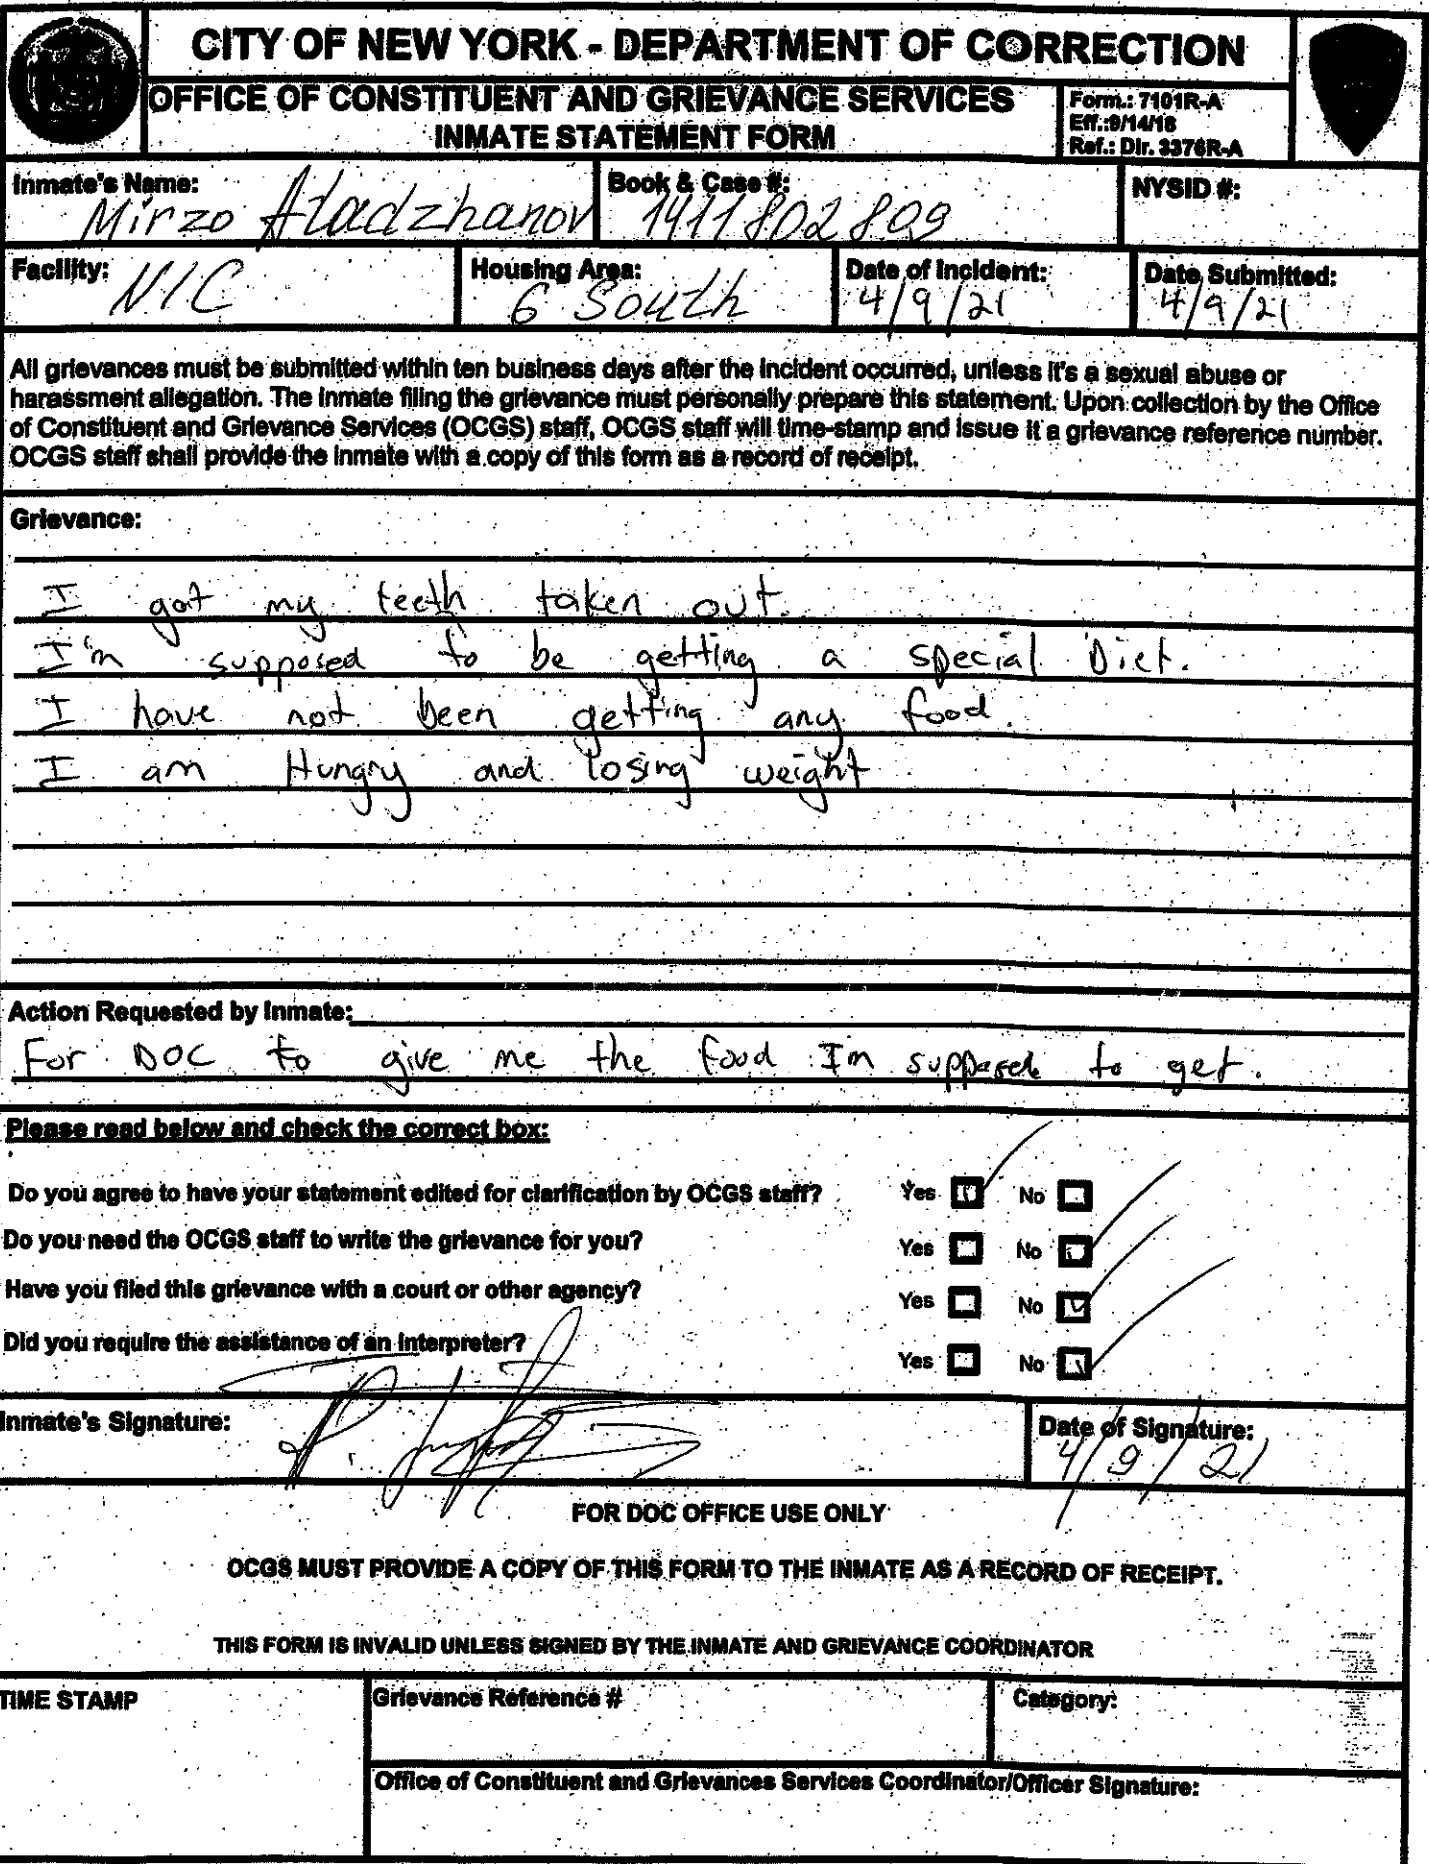 CITY OF NEW YORK - DEPARTMENT OF CORRECTION
OFFICE OF CONSTITUENT AND GRIEVANCE SERVICES
INMATE STATEMENT FORM
Form.: 7101R-A
Eff.:9/14/18
Ref.: Dir. 3376R-A
Inmate's Name:
Mirzo Atadzhanov
Book & Case #:
1411802809
NYSID #:
Facility:
NIC
Housing Area:
6 South
Date of Incident:
4/9/21
Date Submitted:
4/9/21
All grievances must be submitted within ten business days after the incident occurred, unless it's a sexual abuse or
harassment allegation. The inmate filing the grievance must personally prepare this statement. Upon collection by the Office
of Constituent and Grievance Services (OCGS) staff, OCGS staff will time-stamp and issue it a grievance reference number.
OCGS staff shall provide the inmate with a copy of this form as a record of receipt.
Grievance:
I got my teeth taken out.
I'm supposed to be getting a special Diet.
I have not been getting any food.
I am Hungry and losing weight
Action Requested by Inmate:
For DOC to give me the food Im supposed to get.
Please read below and check the correct box:
Do you agree to have your statement edited for clarification by OCGS staff? Yes No
Do you need the OCGS staff to write the grievance for you? Yes No
Have you filed this grievance with a court or other agency? Yes No
Did you require the assistance of an interpreter? Yes No
Inmate's Signature:
Date of Signature:
4/9/21
FOR DOC OFFICE USE ONLY
OCGS MUST PROVIDE A COPY OF THIS FORM TO THE INMATE AS A RECORD OF RECEIPT.
THIS FORM IS INVALID UNLESS SIGNED BY THE INMATE AND GRIEVANCE COORDINATOR
TIME STAMP
Grievance Reference #
Category:
Office of Constituent and Grievances Services Coordinator/Officer Signature: